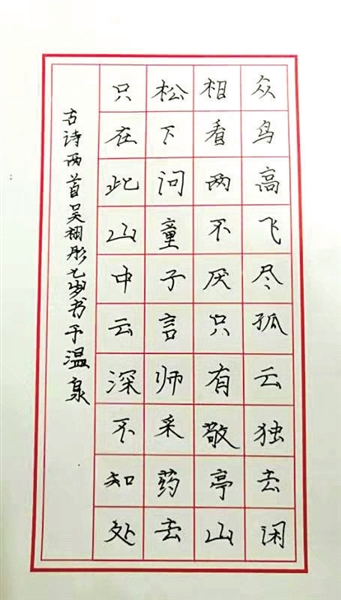 众鸟高飞尽孤云独去闲
相看两不厌只有敬亭山
松下问童子言师采药去
只在此山中云深不知处
古诗两首吴栩彤七岁书于温泉